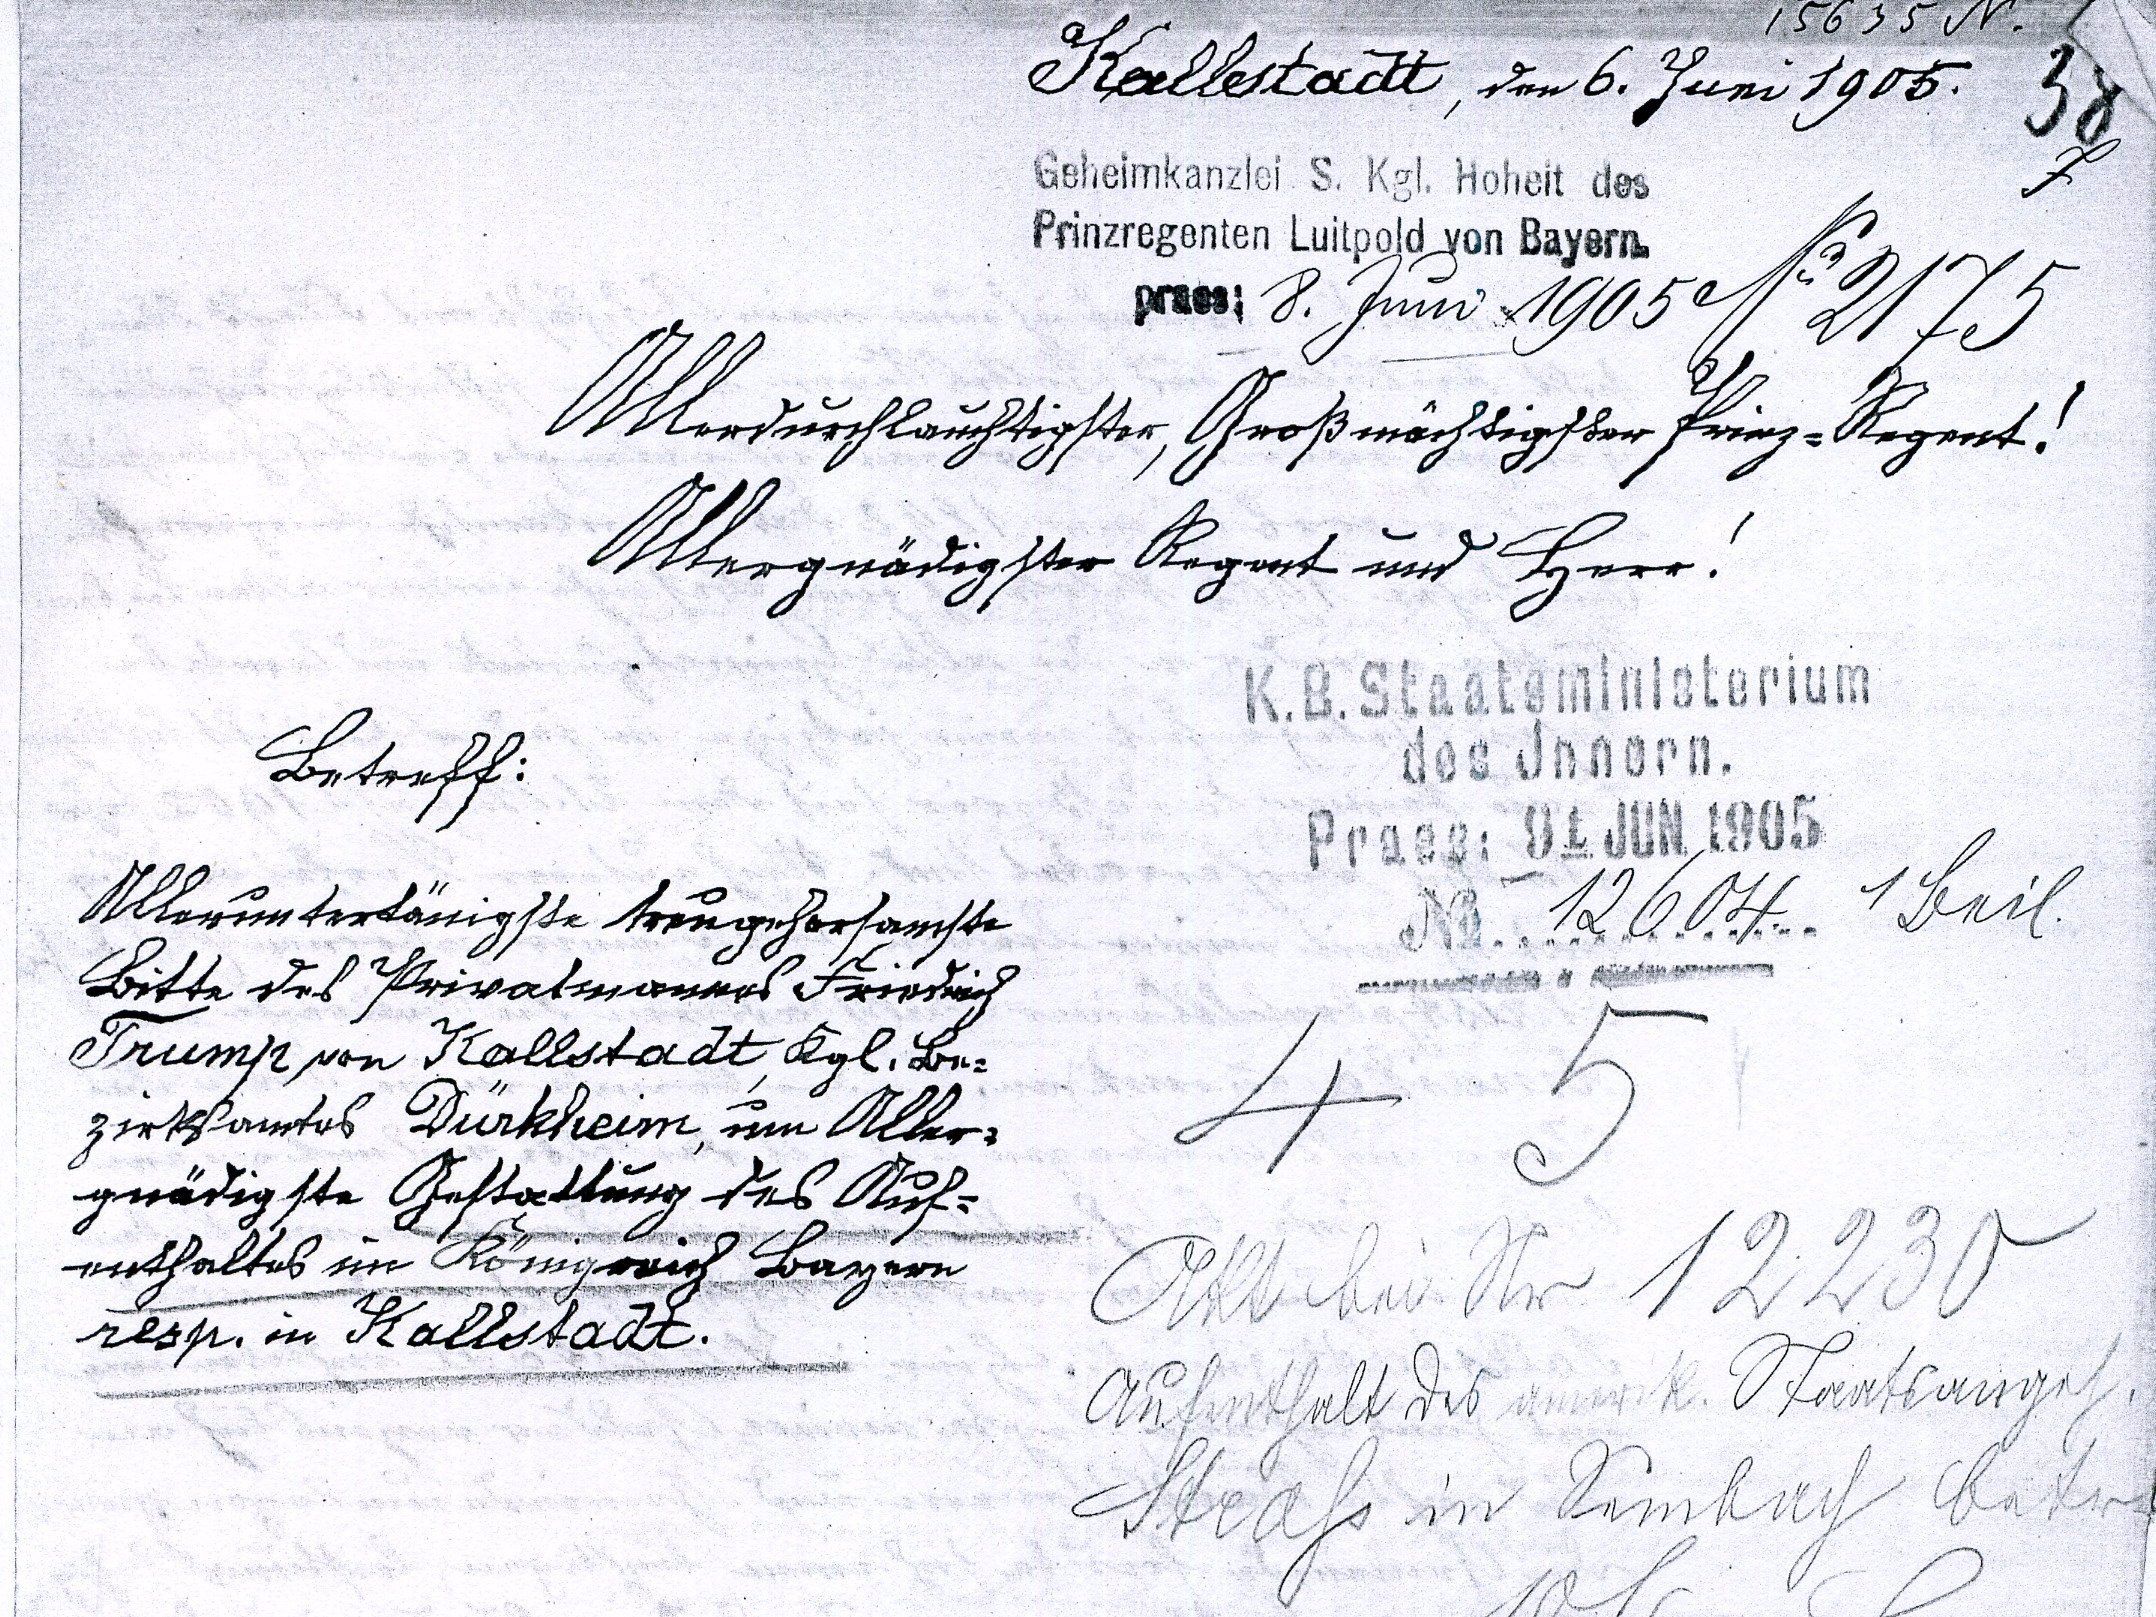 15635 N.
Kallstadt, den 6. Juni 1905.
38
Geheimkanzlei S. Kgl. Hoheit des
Prinzregenten Luitpold von Bayern.
praes: 8. Juni 1905 No 2175
Allerdurchlauchtigster, Großmächtigster Prinz=Regent!
Allergnädigster Regent und Herr!
K. B. Staatsministerium
des Innern.
Praes: JUN 1905
No 12604 1 Beil.
Betreff:
Alleruntertänigste treugehorsamste
Bitte des Privatmannes Friedrich
Trump von Kallstadt, Kgl. Be=
zirksamtes Dürkheim, um Aller=
gnädigste Gestattung des Auf=
enthaltes im Königreich Bayern
resp. in Kallstadt.
4 5
Akt bei Nr 12230
Aufenthalt des amerik. Staatsangeh.
in Sembach betr.